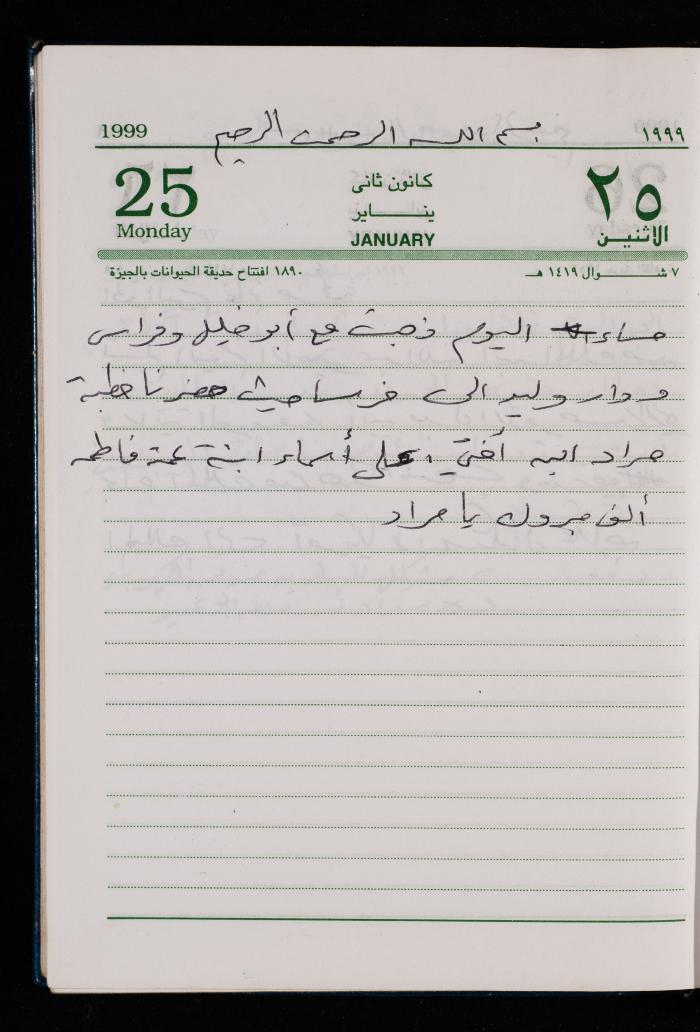 بسم الله الرحمن الرحيم
1999 ١٩٩٩
25 ٢٥
كانون ثانى
ينــاير
Monday JANUARY الاثنين
٧ شــوال ١٤١٩ هـ ١٨٩٠ افتتاح حديقة الحيوانات بالجيزة
مساء اليوم ذهبت مع أبو خليل وفراس
ودار وليد الى فرسا حيث حضرنا خطبة
مراد ابن أختي على أسماء ابنة عمة فاطمة
ألف مبروك يا مراد